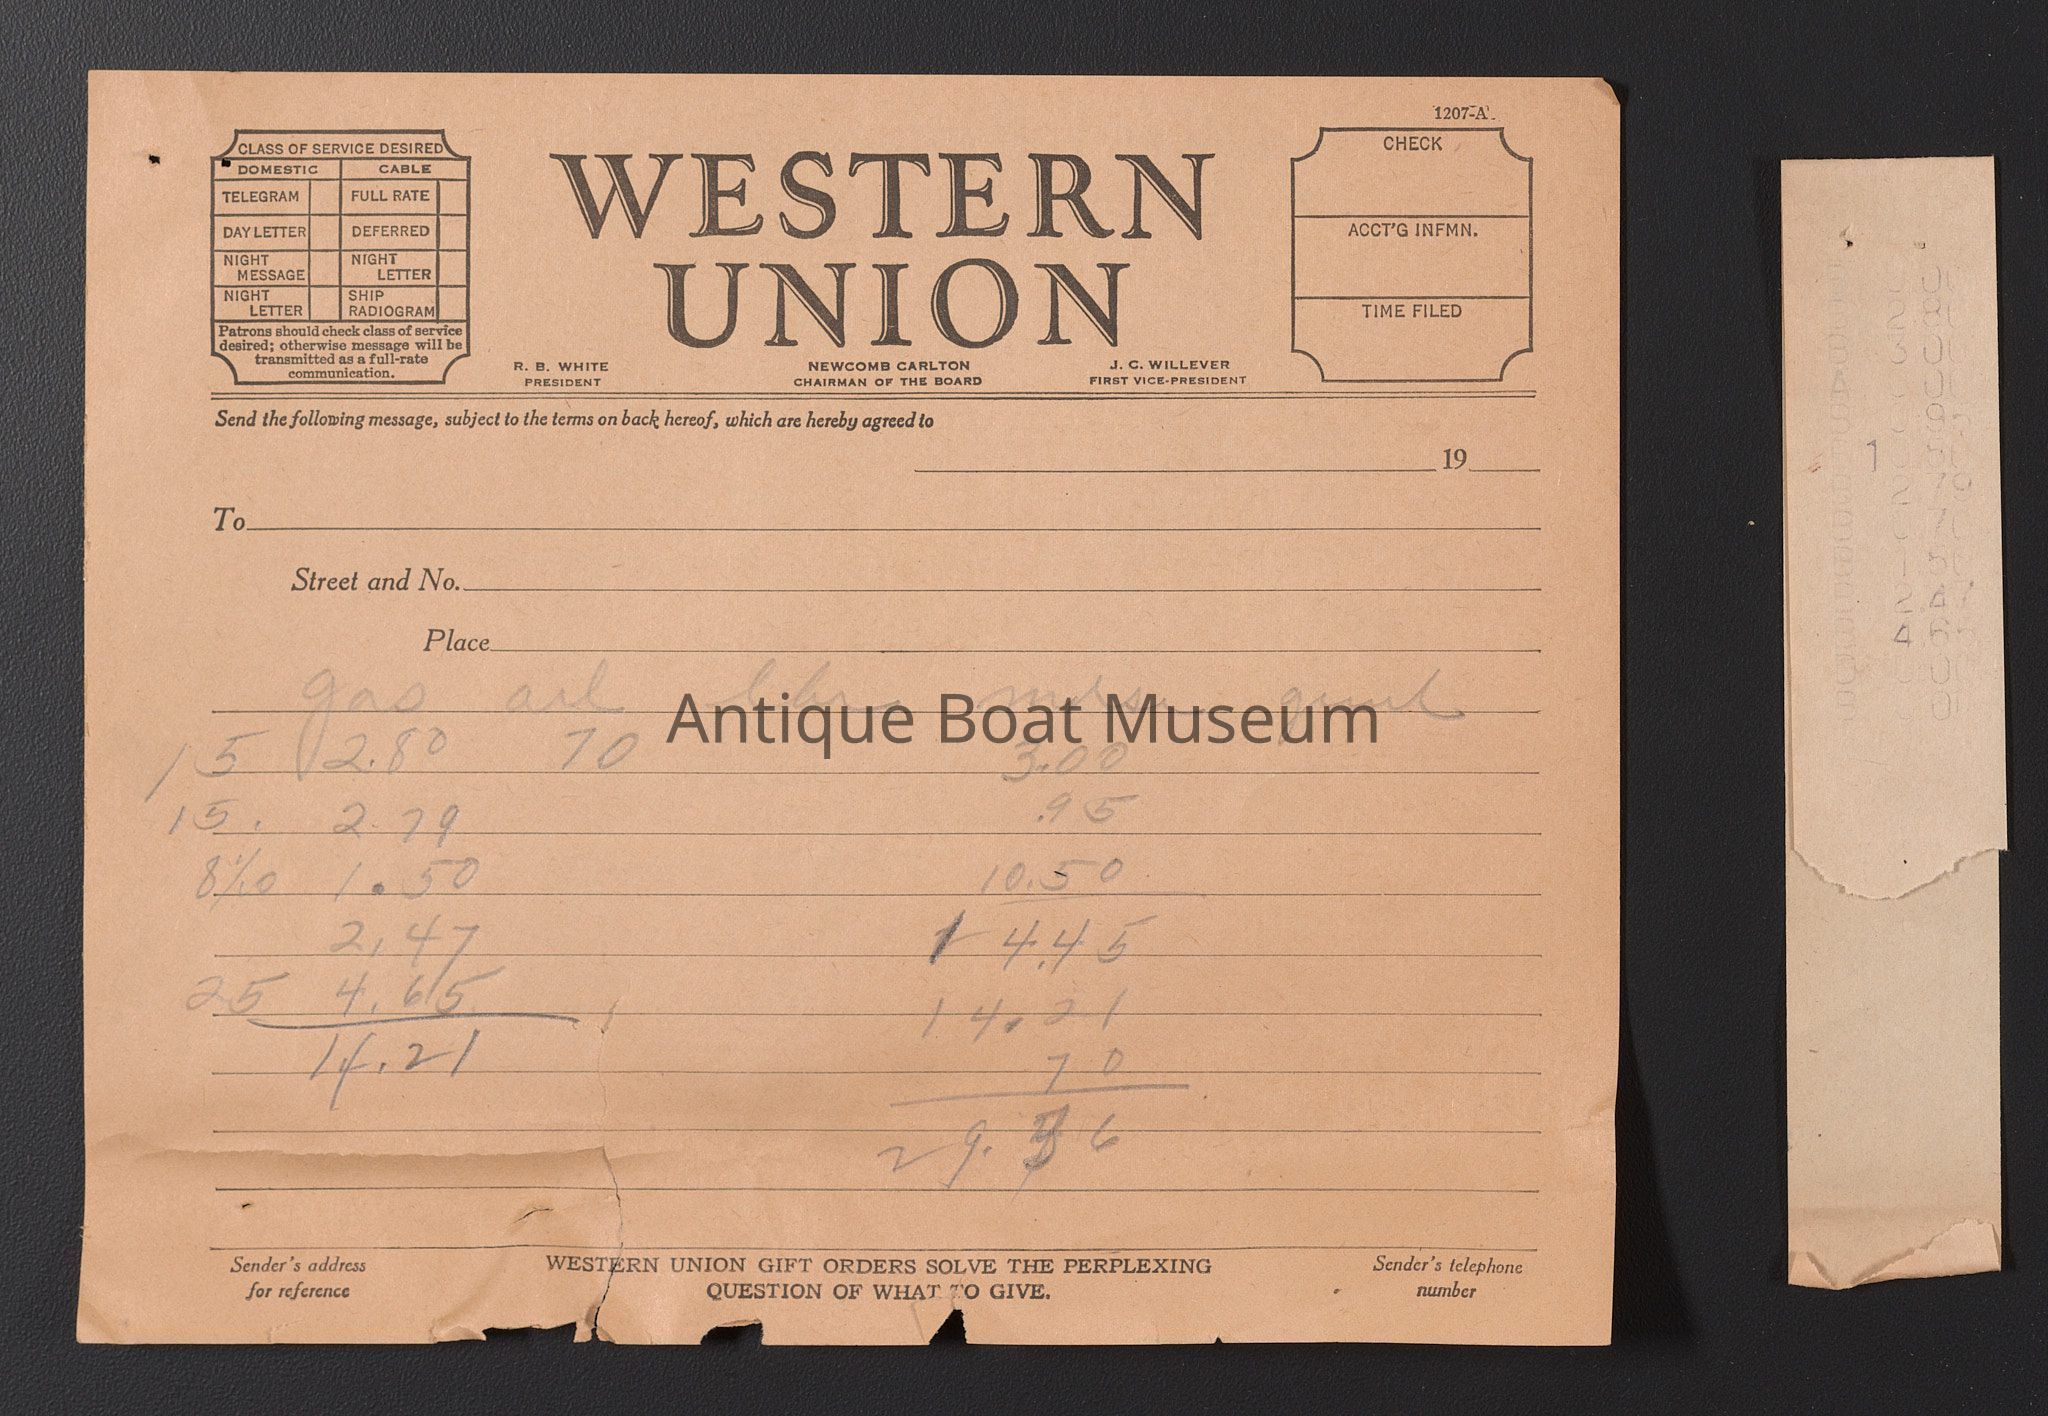 1207-A
CLASS OF SERVICE DESIRED
DOMESTIC CABLE
TELEGRAM FULL RATE
DAY LETTER DEFERRED
NIGHT MESSAGE NIGHT LETTER
NIGHT LETTER SHIP RADIOGRAM
Patrons should check class of service
desired; otherwise message will be
transmitted as a full-rate
communication.
WESTERN
UNION
R. B. WHITE
PRESIDENT
NEWCOMB CARLTON
CHAIRMAN OF THE BOARD
J. C. WILLEVER
FIRST VICE-PRESIDENT
CHECK
ACCT'G INFMN.
TIME FILED
Send the following message, subject to the terms on back hereof, which are hereby agreed to
19
To
Street and No.
Place
gas oil mdse
Antique Boat Museum
15 2.80 70 3.00
15. 2.79 .95
8/10 1.50 10.50
2.47 14.45
25 4.65 14.21
14.21 70
29.36
Sender's address
for reference
WESTERN UNION GIFT ORDERS SOLVE THE PERPLEXING
QUESTION OF WHAT TO GIVE.
Sender's telephone
number